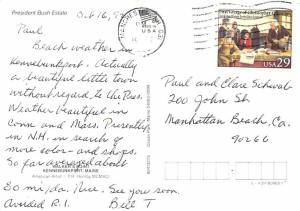 President Bush Estate
Oct 16,
Paul
Beach weather in
Kennebunkport. Actually
a beautiful little town
without regard to the Pres.
Weather beautiful in
Conn and Mass. Presently
in N.H. in search of
more color - and ships.
So far averaged about
KENNEBUNKPORT, MAINE
30 mi/da. Nice. See you soon.
Avoided R.I. Bill T
USA
USA 29
Paul and Clare Schwab
200 John St.
Manhattan Beach, Ca.
90266